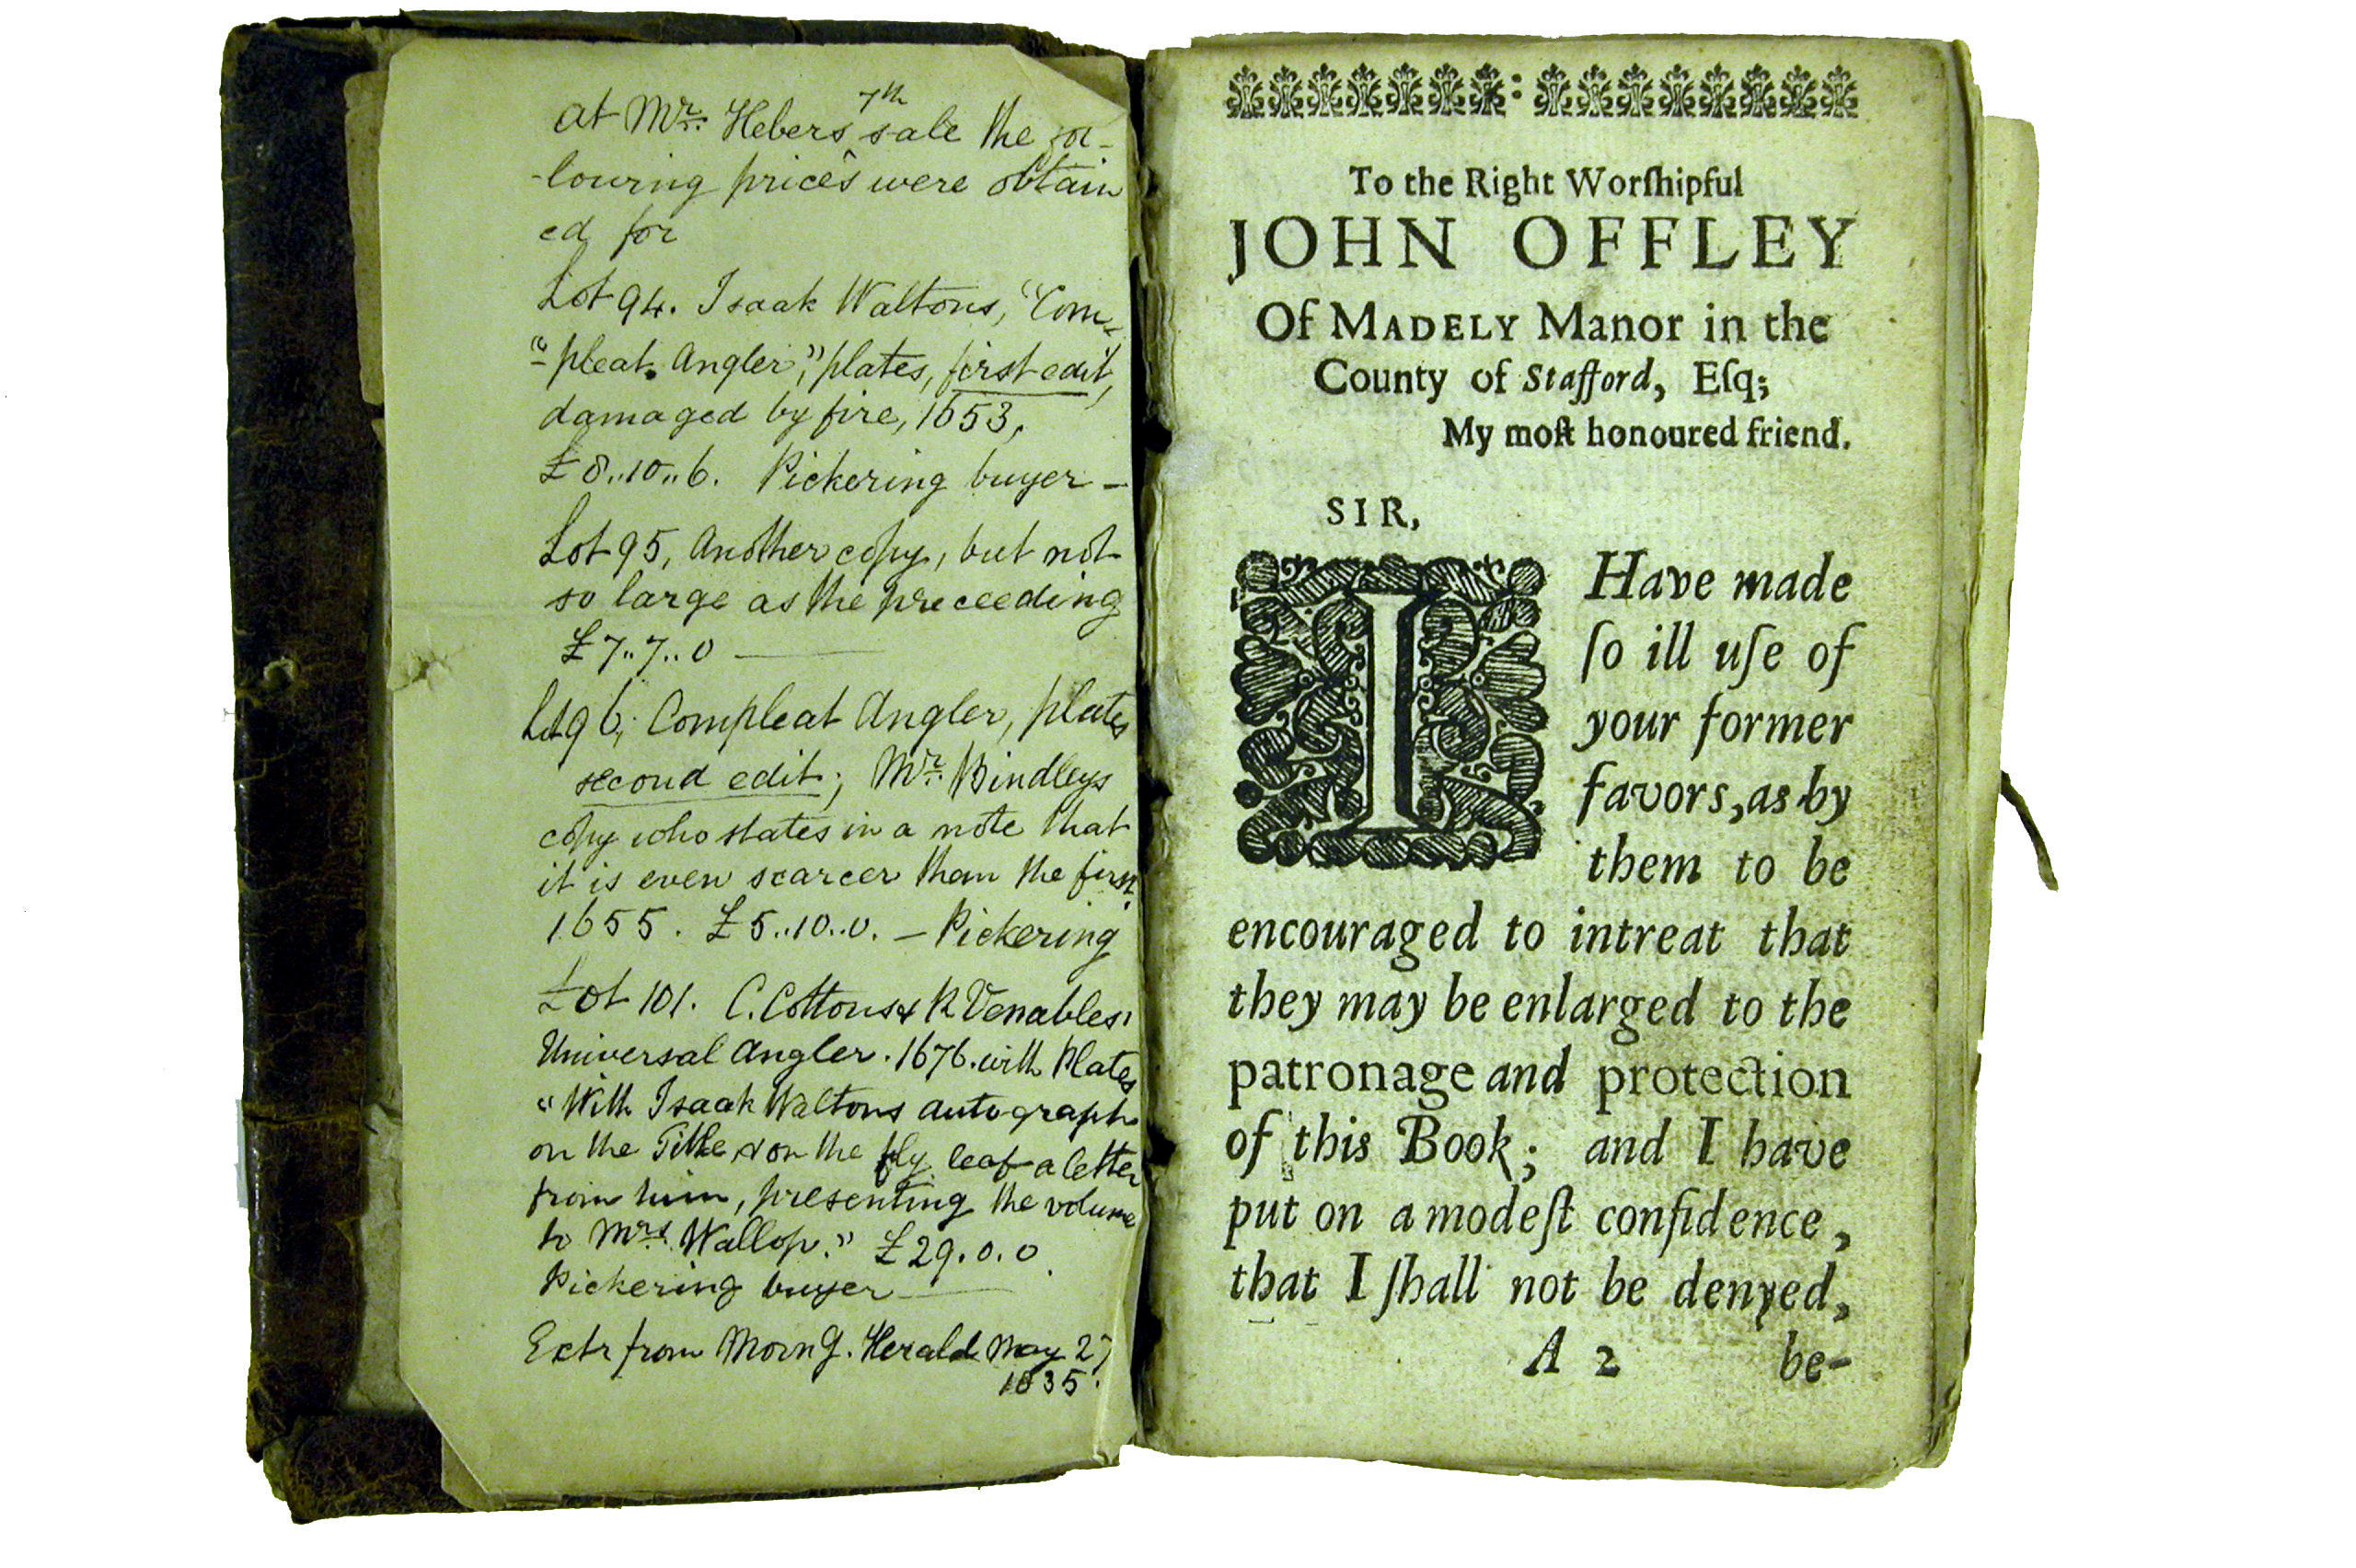 at Mr. Hebers 7th sale the fol-
-lowing prices were obtain
ed for
Lot 94. Isaak Waltons, "Com-
"-pleat. Angler", plates, first edit,
damaged by fire, 1653,
£8..10..6. Pickering buyer -
Lot 95, Another copy, but not
so large as the preceeding
£7..7..0 —
Lot 96, Compleat Angler, plates
second edit; Mr. Bindleys
copy who states in a note that
it is even scarcer than the first
1655. £5..10..0. - Pickering
Lot 101. C. Cottons & R Venables'
Universal Angler. 1676. with Plates
"With Isaak Waltons autograph
on the Title, & on the fly leaf a letter
from him, presenting the volume
to Mrs. Wallop." £29.0.0.
Pickering buyer —
Extr from Morng. Herald May 27
1835.
To the Right Worſhipful
JOHN OFFLEY
Of MADELY Manor in the
County of Stafford, Eſq;
My moſt honoured friend.
SIR,
I Have made
ſo ill uſe of
your former
favors, as by
them to be
encouraged to intreat that
they may be enlarged to the
patronage and protection
of this Book; and I have
put on a modeſt confidence,
that I ſhall not be denyed,
A 2 be-